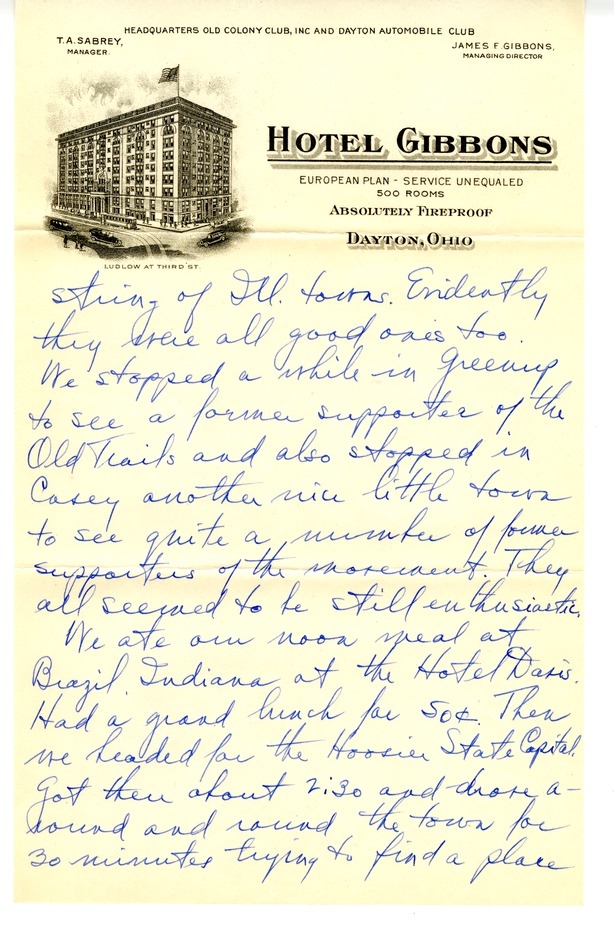 HEADQUARTERS OLD COLONY CLUB, INC AND DAYTON AUTOMOBILE CLUB
T.A. SABREY,
MANAGER.
JAMES F. GIBBONS,
MANAGING DIRECTOR
HOTEL GIBBONS
EUROPEAN PLAN - SERVICE UNEQUALED
500 ROOMS
ABSOLUTELY FIREPROOF
DAYTON, OHIO
LUDLOW AT THIRD ST.
string of Ill. towns. Evidently
they were all good ones too.
We stopped a while in Greenup
to see a former supporter of the
Old Trails and also stopped in
Casey another nice little town
to see quite a number of former
supporters of the movement. They
all seemed to be still enthusiastic.
We ate our noon meal at
Brazil, Indiana at the Hotel Davis.
Had a grand lunch for 50¢. Then
we headed for the Hoosier State Capital.
Got there about 2:30 and drove a-
round and round the town for
30 minutes trying to find a place